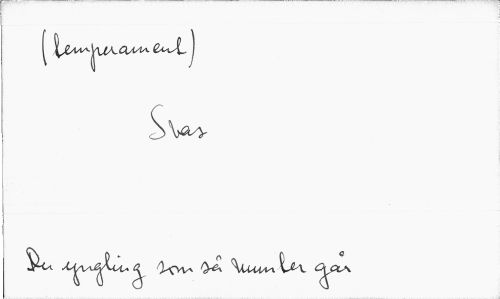 (temperament)
Svar
Du yngling som så munter går